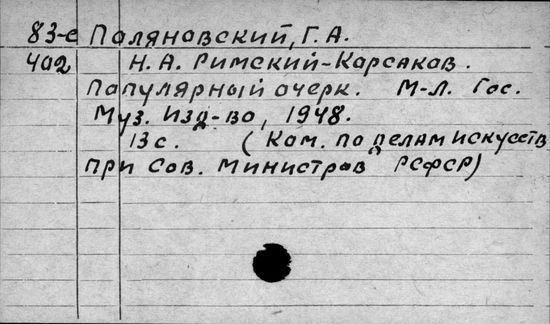 83-е Поляновский, Г. А.
402 Н. А. Римский-Корсаков.
Популярный очерк. М-Л. Гос.
Муз. Изд-во, 1948.
13 с. (Ком. по делам искусств
при Сов. Министров РСФСР)